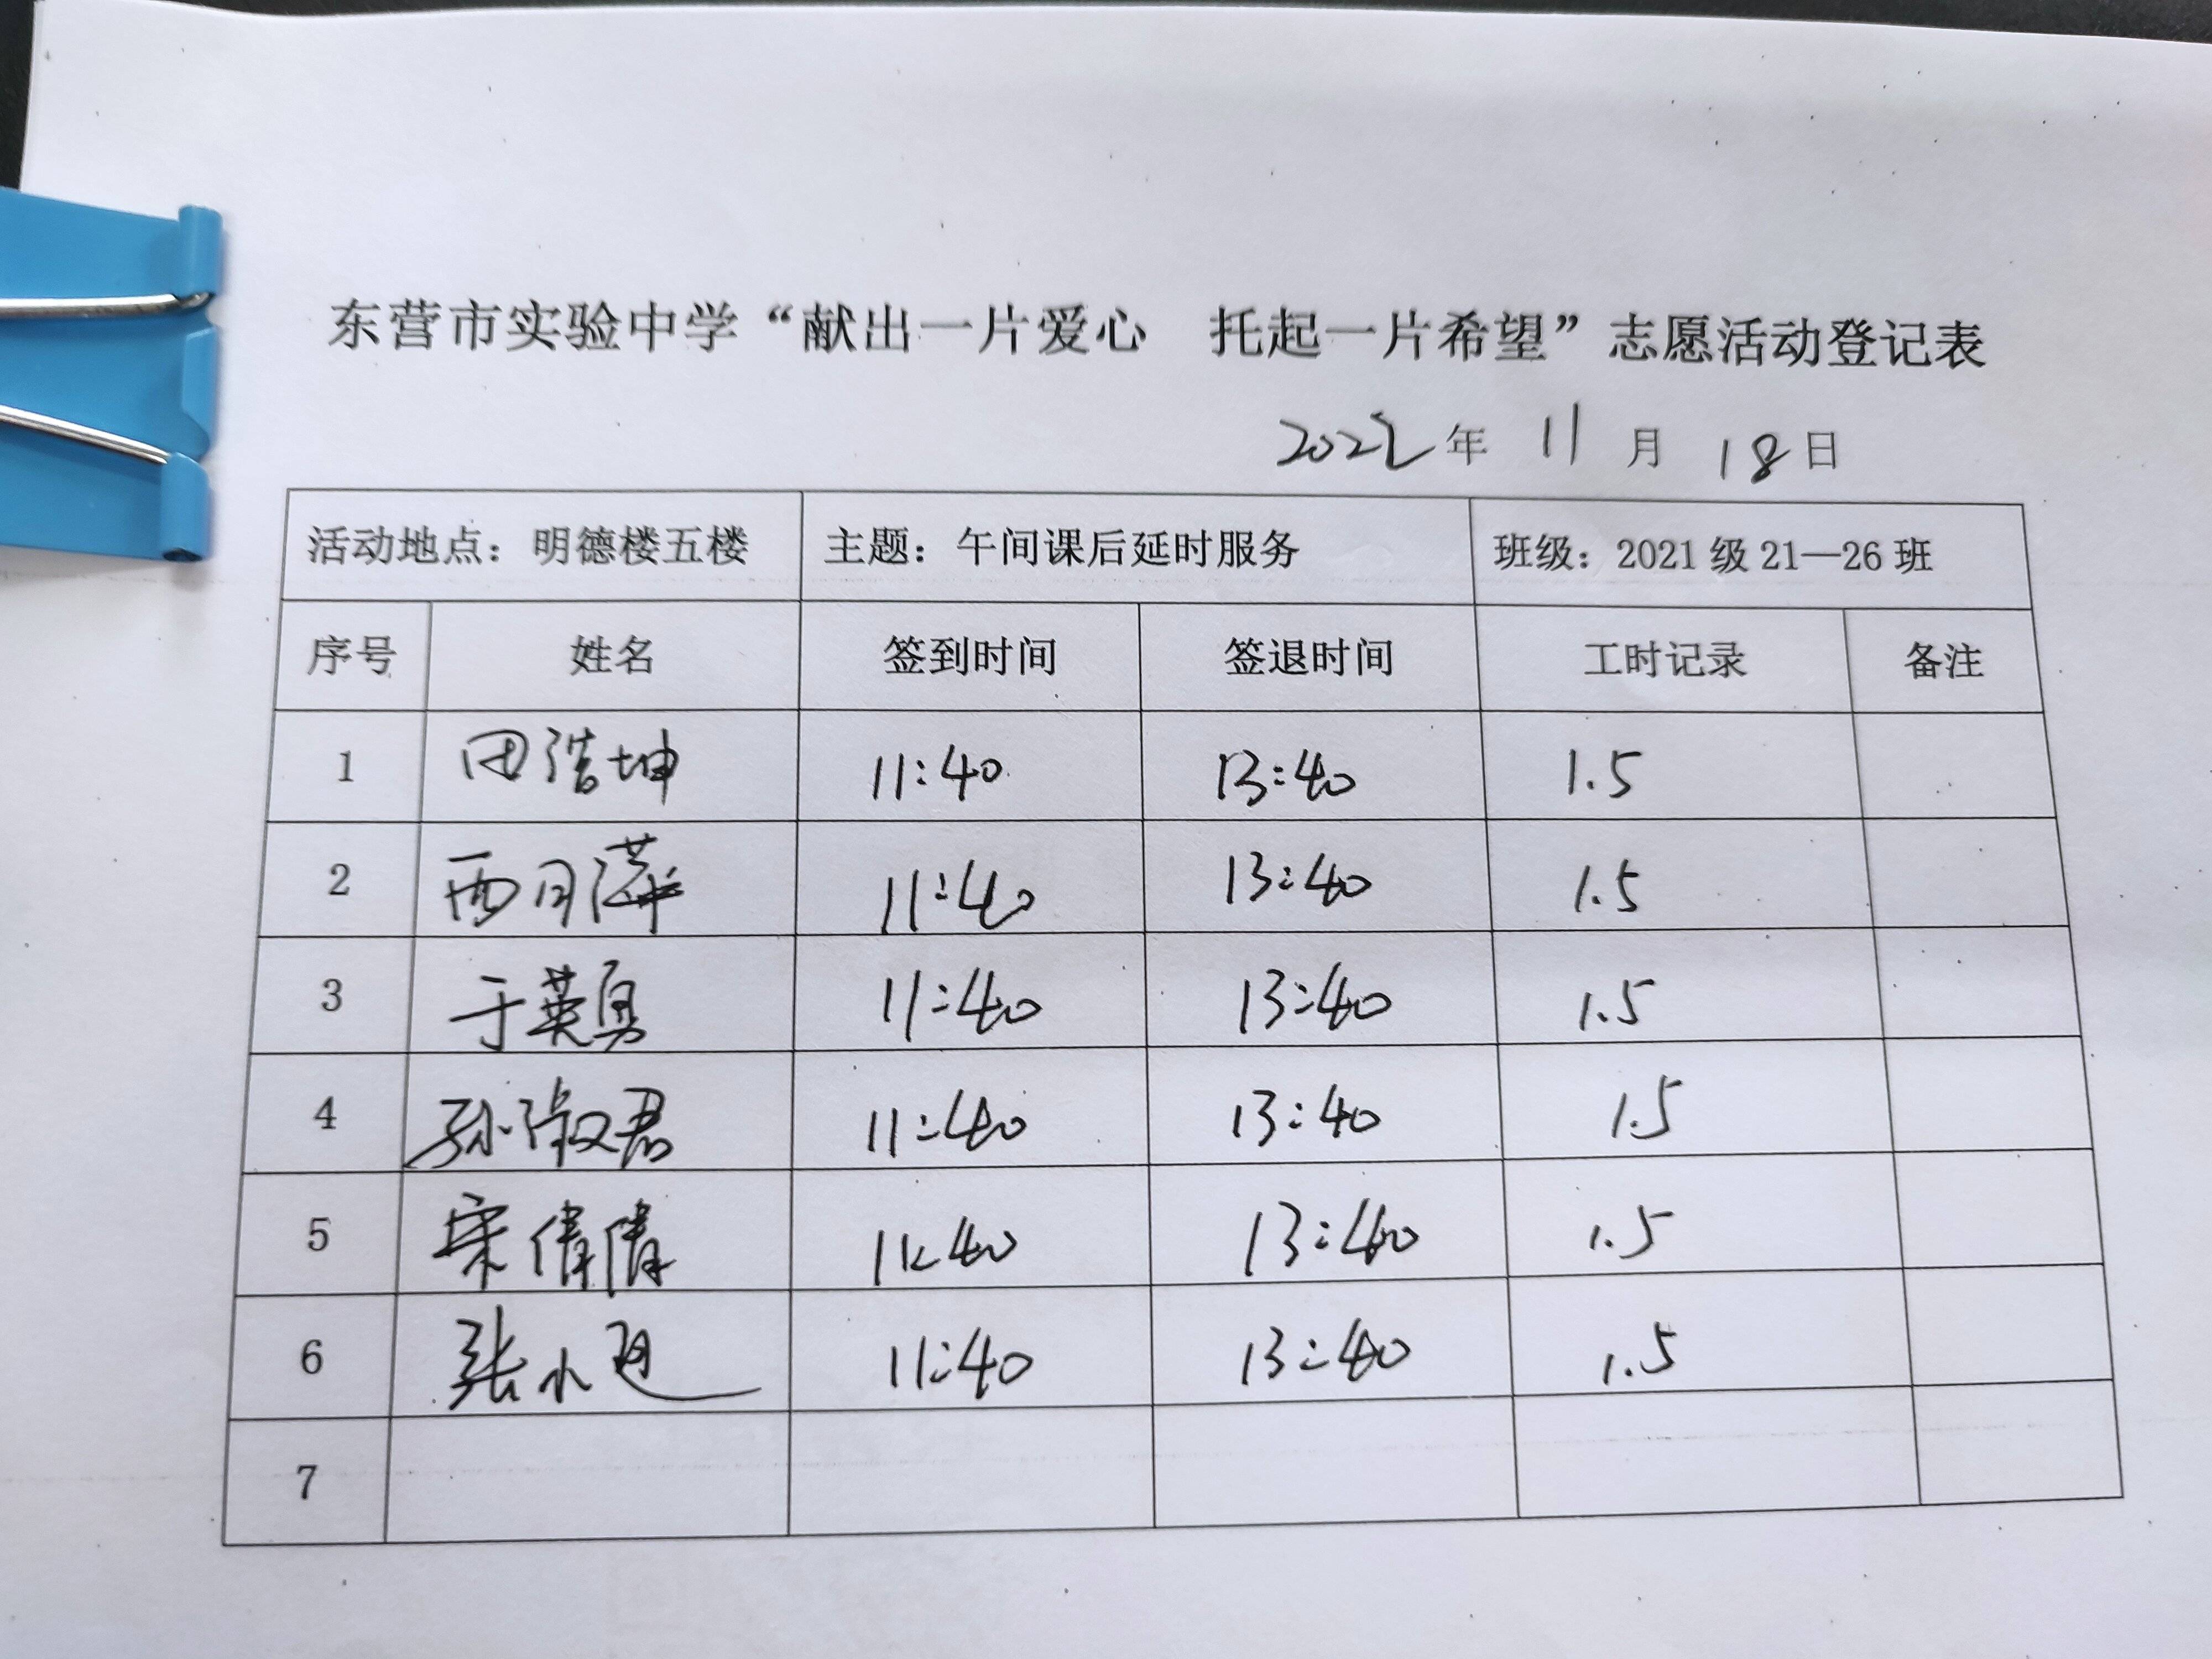 东营市实验中学“献出一片爱心 托起一片希望”志愿活动登记表
2022年 11 月 18日
活动地点：明德楼五楼 主题：午间课后延时服务 班级：2021级21—26班
序号 姓名 签到时间 签退时间 工时记录 备注
1 田浩坤 11:40 13:40 1.5
2 西月萍 11:40 13:40 1.5
3 于英 11:40 13:40 1.5
4 孙淑君 11:40 13:40 1.5
5 宋倩倩 11:40 13:40 1.5
6 张小 11:40 13:40 1.5
7